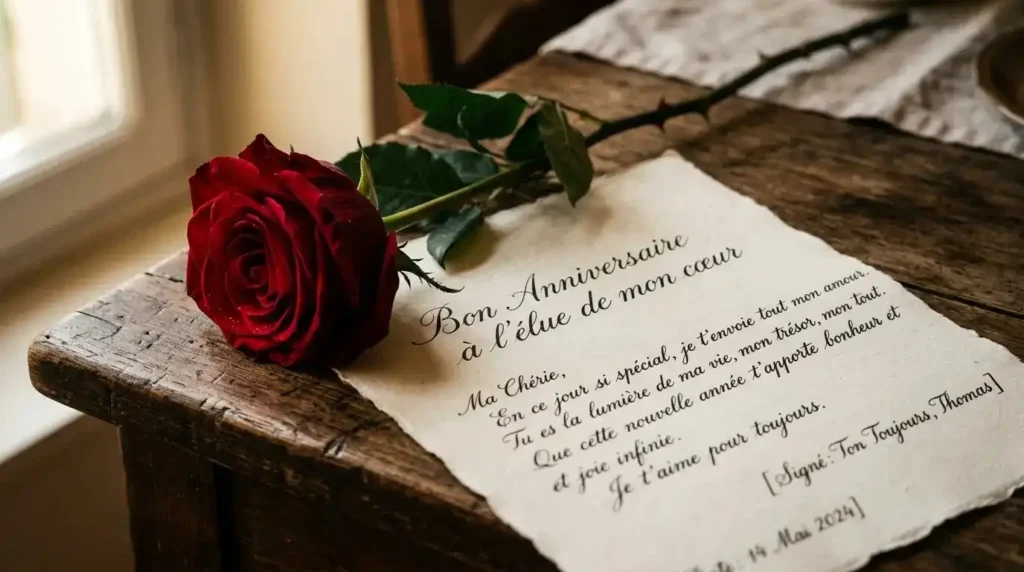 Bon Anniversaire
à l'élue de mon cœur
Ma Chérie,
En ce jour si spécial, je t'envoie tout mon amour.
Tu es la lumière de ma vie, mon trésor, mon tout.
Que cette nouvelle année t'apporte bonheur et
et joie infinie.
Je t'aime pour toujours.
[Signé: Ton Toujours, Thomas]
: 14 Mai 2024]